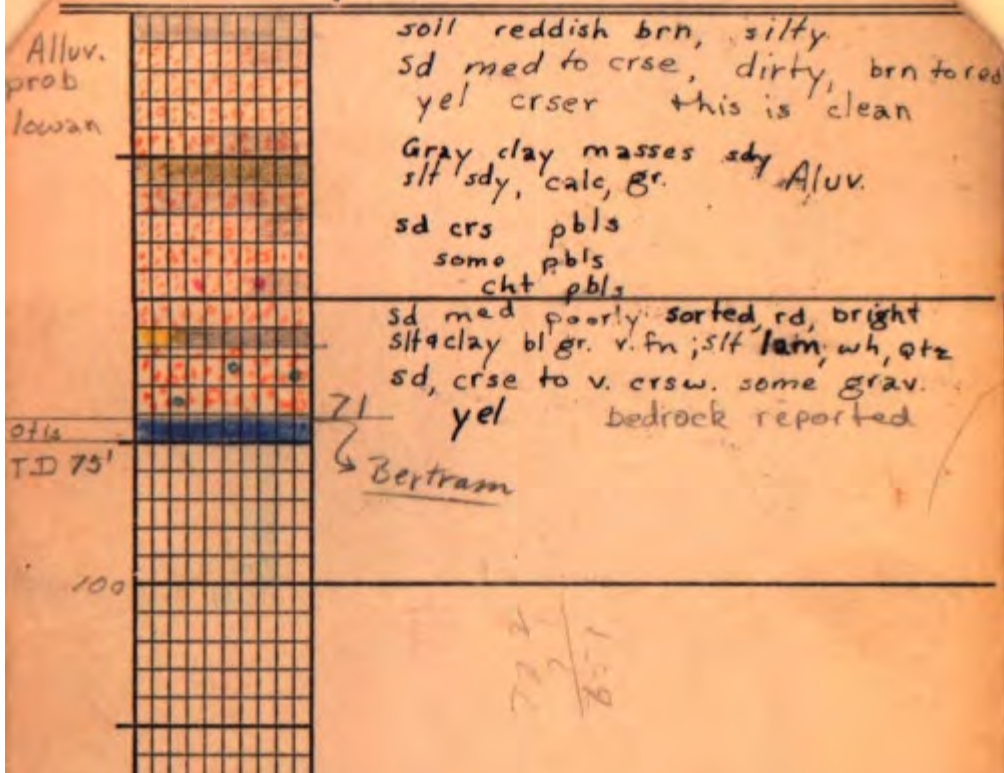 Alluv.
prob
Iowan
soil reddish brn, silty
sd med to crse, dirty, brn to red
yel crser this is clean
Gray clay masses sdy
slt sdy, calc, gr. Aluv.
sd crs pbls
some pbls
cht pbls
sd med poorly sorted, rd, bright
slt & clay bl gr. v. fn; slt lam, wh, qtz
sd, crse to v. crsw. some grav.
71
yel bedrock reported
Otis
T.D 75'
Bertram
100